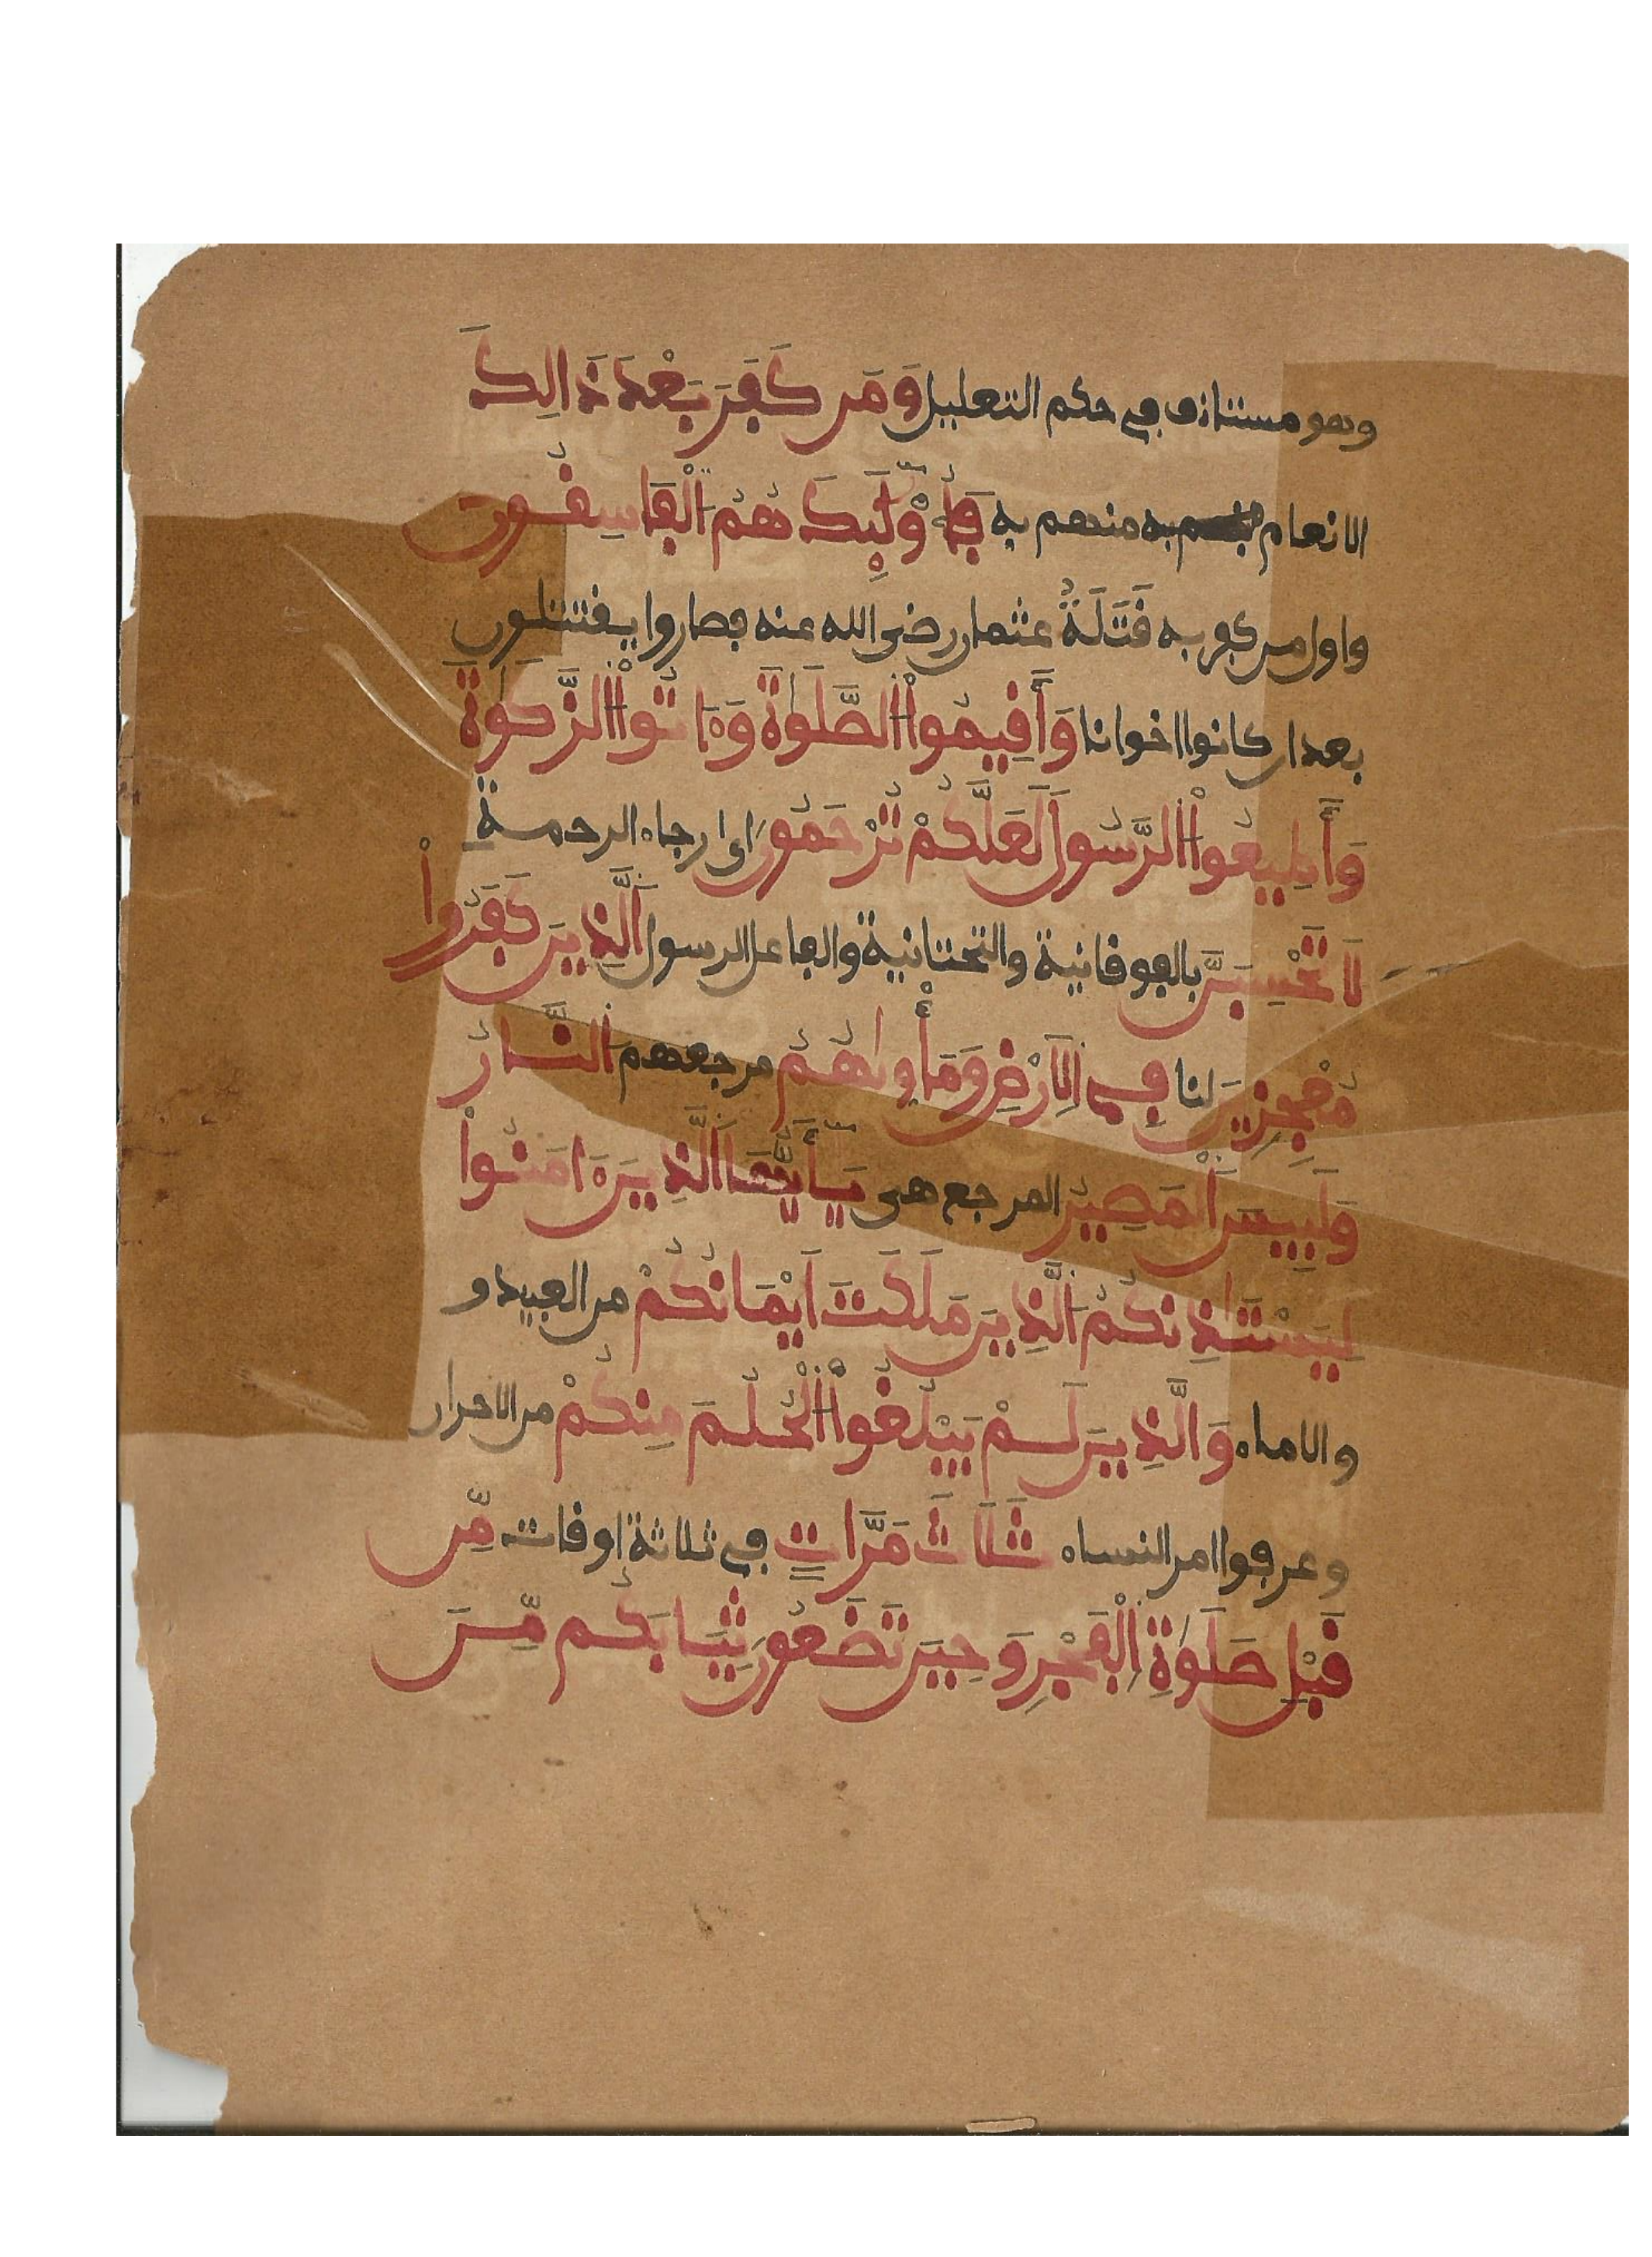 وهو مستانف في حكم التعليل وَمَن كَفَرَ بَعْدَ ذَالِكَ
الانعام منهم به فَأُوْلَٰئِكَ هُمُ الْفَاسِقُونَ
واول من كفر به قَتَلَةُ عثمان رضى الله عنه فصاروا يقتتلون
بعد ان كانوا اخوانا وَأَقِيمُواْ الصَّلَوٰةَ وَءَاتُواْ الزَّكَوٰةَ
وَأَطِيعُواْ الرَّسُولَ لَعَلَّكُمْ تُرْحَمُونَ اى رجاء الرحمة
لَا تَحْسِبَنَّ بالفوقانية والتحتانية والفاعل الرسول الَّذِينَ كَفَرُواْ
مُعْجِزِينَ لنا فِي الَارْضِ وَمَأْوٜىٰهُمُ مرجعهم النَّارُ
وَلَبِيسَ الْمَصِيرُ المرجع هى يَٰأَيُّهَا الَّذِينَ ءَامَنُواْ
لِيَسْتَٰذِنكُمُ الَّذِينَ مَلَكَتَ اَيْمَانُكُمْ من العبيد و
والاماء وَالَّذِينَ لَمْ يَبْلُغُواْ الْحُلُمَ مِنكُمْ من الاحرار
وعرفوا امر النساء ثَلَاثَ مَرَّاتٍ في ثلاثة اوقات مِّن
قَبْلِ صَلَوٰةِ الْفَجْرِ وَحِينَ تَضَعُونَ ثِيَابَكُم مِّنَ